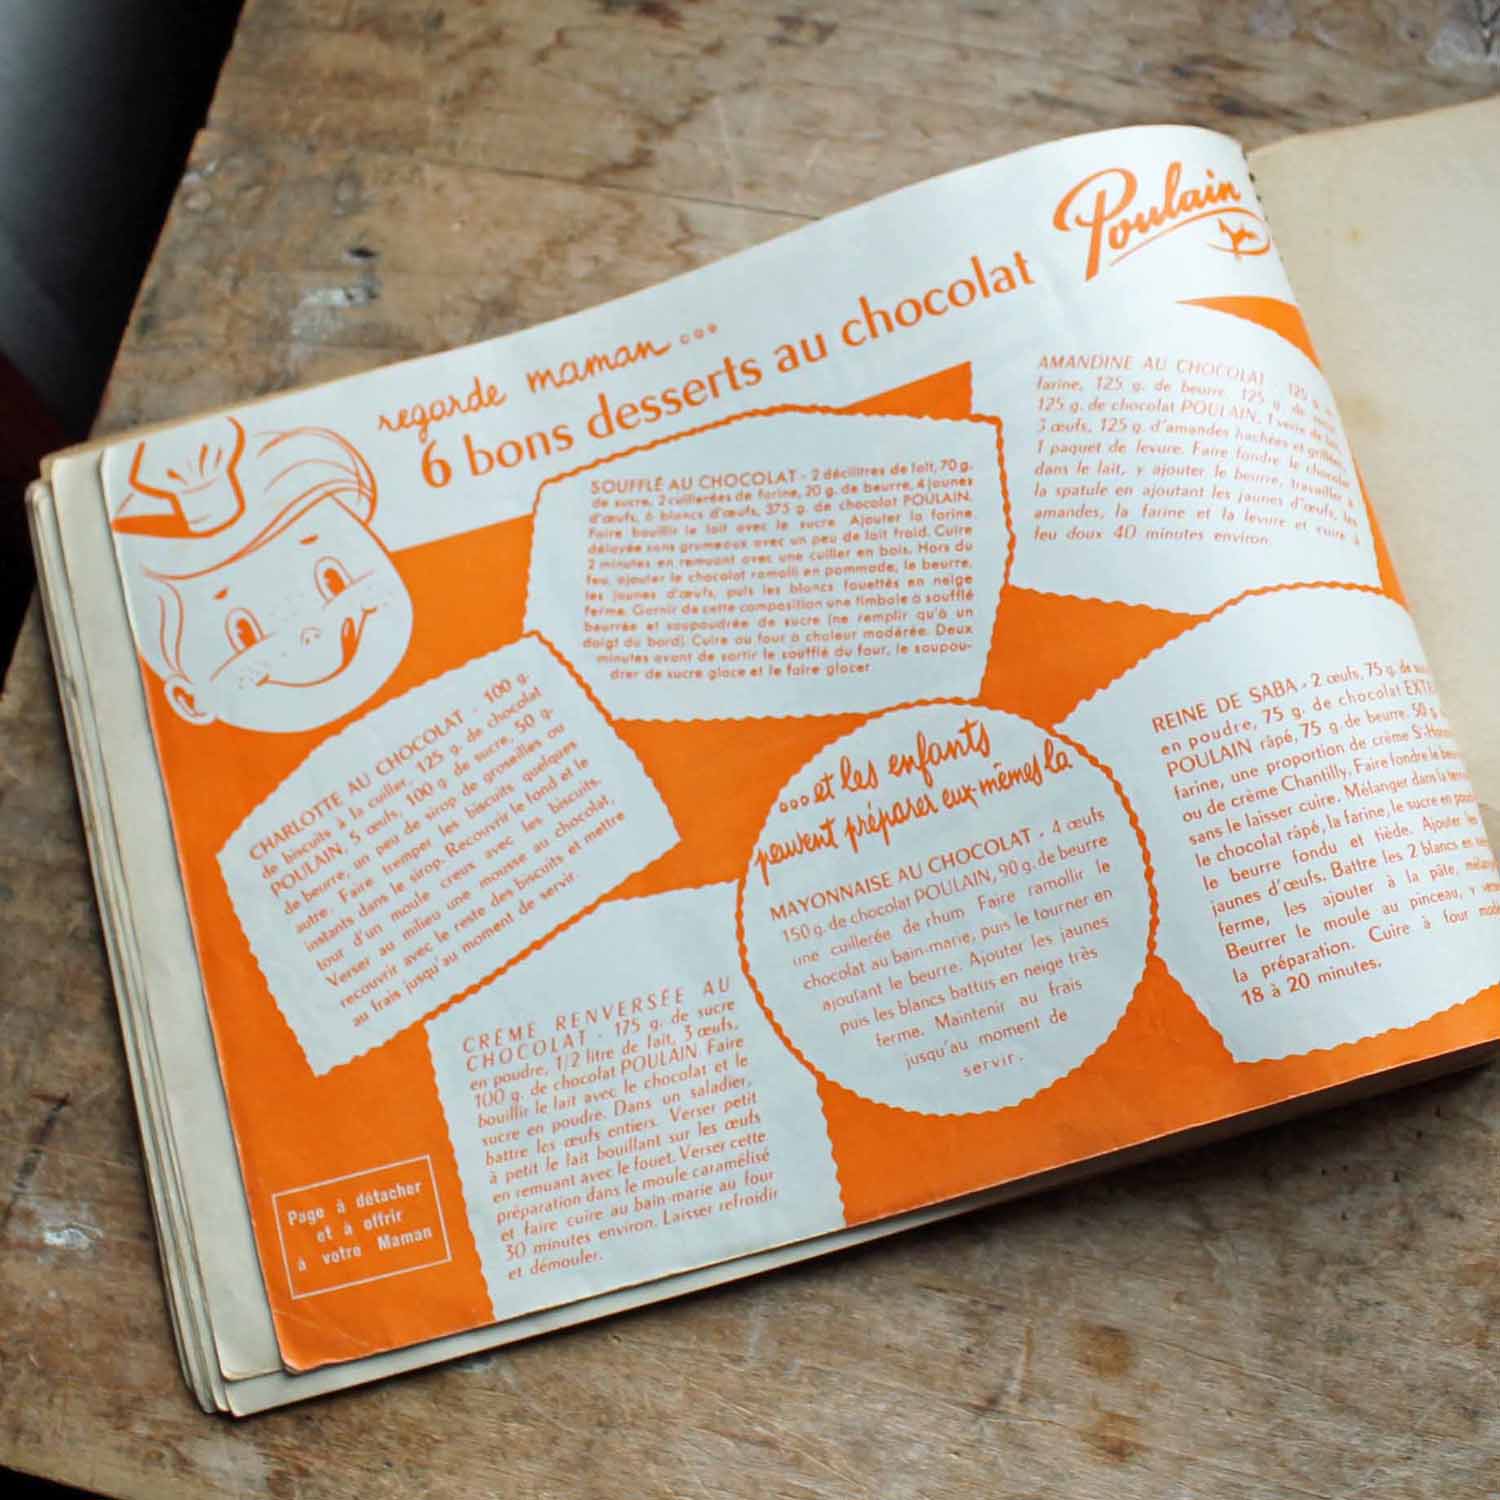 Poulain
regarde maman...
6 bons desserts au chocolat
SOUFFLÉ AU CHOCOLAT - 2 décilitres de lait, 70 g.
de sucre, 2 cuillerées de farine, 20 g. de beurre, 4 jaunes
d'œufs, 6 blancs d'œufs, 375 g. de chocolat POULAIN.
Faire bouillir le lait avec le sucre. Ajouter la farine,
délayée sans grumeaux avec un peu de lait froid. Cuire
2 minutes en remuant avec une cuiller en bois. Hors du
feu, ajouter le chocolat ramolli en pommade, le beurre,
les jaunes d'œufs, puis les blancs fouettés en neige
ferme. Garnir de cette composition une timbale à soufflé
beurrée et saupoudrée de sucre (ne remplir qu'à un
doigt du bord). Cuire au four à chaleur modérée. Deux
minutes avant de sortir le soufflé du four, le saupou-
drer de sucre glace et le faire glacer
AMANDINE AU CHOCOLAT - 125 g.
farine, 125 g. de beurre 125 g. de
125 g. de chocolat POULAIN, 1 verre de
3 œufs, 125 g. d'amandes hachées et grillées,
1 paquet de levure. Faire fondre le chocolat
dans le lait, y ajouter le beurre, travailler à
la spatule en ajoutant les jaunes d'œufs, les
amandes, la farine et la levure et cuire à
feu doux 40 minutes environ.
CHARLOTTE AU CHOCOLAT - 100 g.
de biscuits à la cuiller, 125 g. de chocolat
POULAIN, 5 œufs, 100 g. de sucre, 50 g.
de beurre, un peu de sirop de groseilles ou
autre. Faire tremper les biscuits quelques
instants dans le sirop. Recouvrir le fond et le
tour d'un moule creux avec les biscuits.
Verser au milieu une mousse au chocolat,
recouvrir avec le reste des biscuits et mettre
au frais jusqu'au moment de servir.
...et les enfants
peuvent préparer eux-mêmes la
MAYONNAISE AU CHOCOLAT - 4 œufs
150 g. de chocolat POULAIN, 90 g. de beurre
une cuillerée de rhum Faire ramollir le
chocolat au bain-marie, puis le tourner en
ajoutant le beurre. Ajouter les jaunes
puis les blancs battus en neige très
ferme. Maintenir au frais
jusqu'au moment de
servir.
REINE DE SABA - 2 œufs, 75 g. de
en poudre, 75 g. de chocolat
POULAIN râpé, 75 g de beurre. 50 g.
farine, une proportion de crème
ou de crème Chantilly. Faire fondre le
sans le laisser cuire. Mélanger dans la
le chocolat râpé, la farine, le sucre en
le beurre fondu et tiède. Ajouter les
jaunes d'œufs. Battre les 2 blancs en
ferme, les ajouter à la pâte,
Beurrer le moule au pinceau, y
la préparation. Cuire à four
18 à 20 minutes.
CRÈME RENVERSÉE AU
CHOCOLAT - 175 g. de sucre
en poudre, 1/2 litre de lait, 3 œufs,
100 g. de chocolat POULAIN. Faire
bouillir le lait avec le chocolat et le
sucre en poudre. Dans un saladier,
battre les œufs entiers. Verser petit
à petit le lait bouillant sur les œufs
en remuant avec le fouet. Verser cette
préparation dans le moule caramélisé
et faire cuire au bain-marie au four
30 minutes environ. Laisser refroidir
et démouler.
Page à détacher
et à offrir
à votre Maman